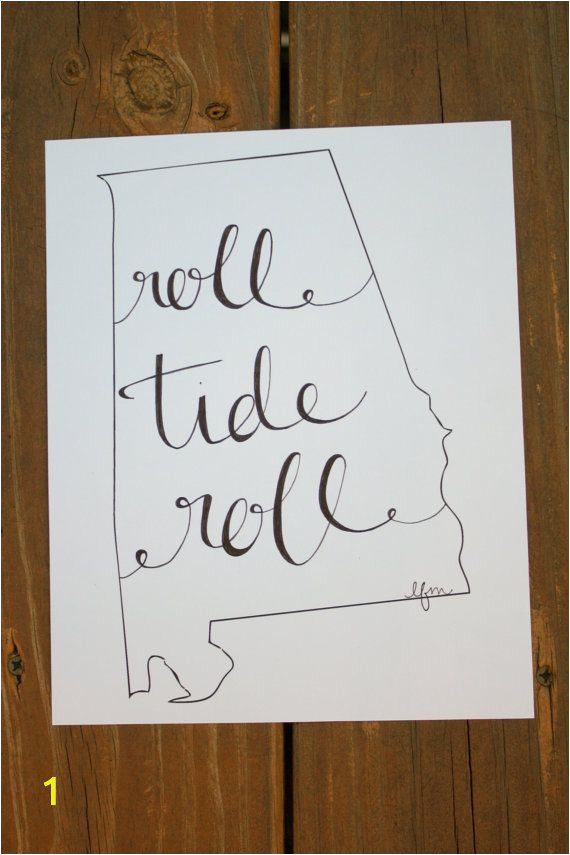 roll
tide
roll
lfm
1